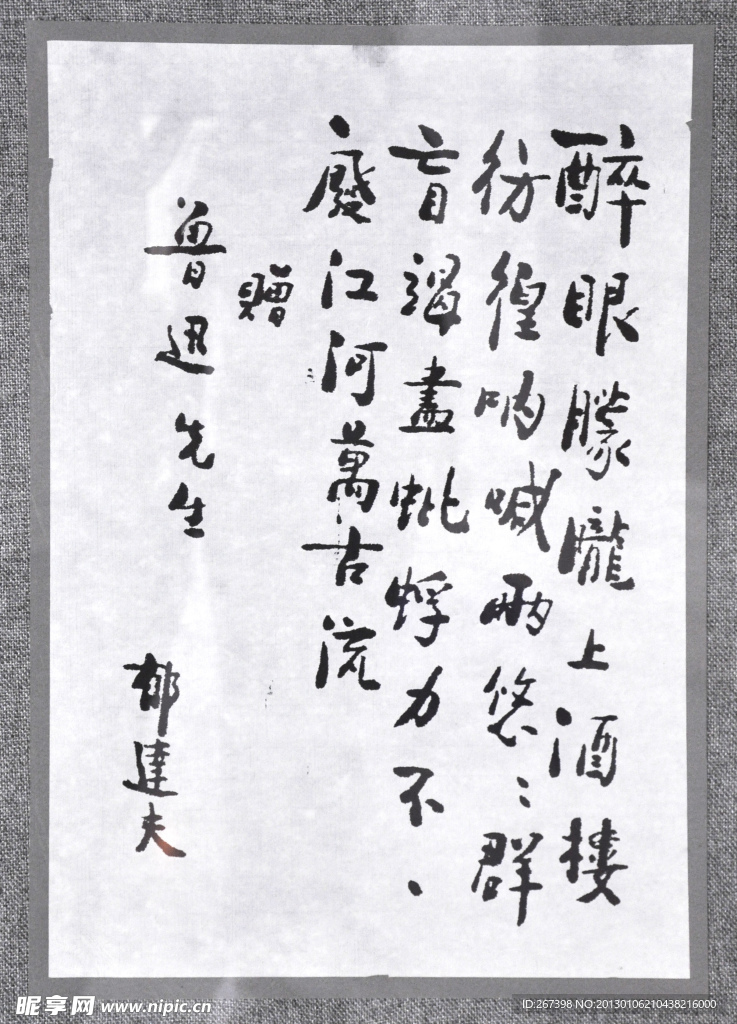 醉眼朦朧上酒樓
彷徨吶喊兩悠〻群
盲竭盡蚍蜉力不、
廢江河萬古流
贈
魯迅先生
郁達夫
昵享网 www.nipic.cn
ID:267398 NO:20130106210438216000